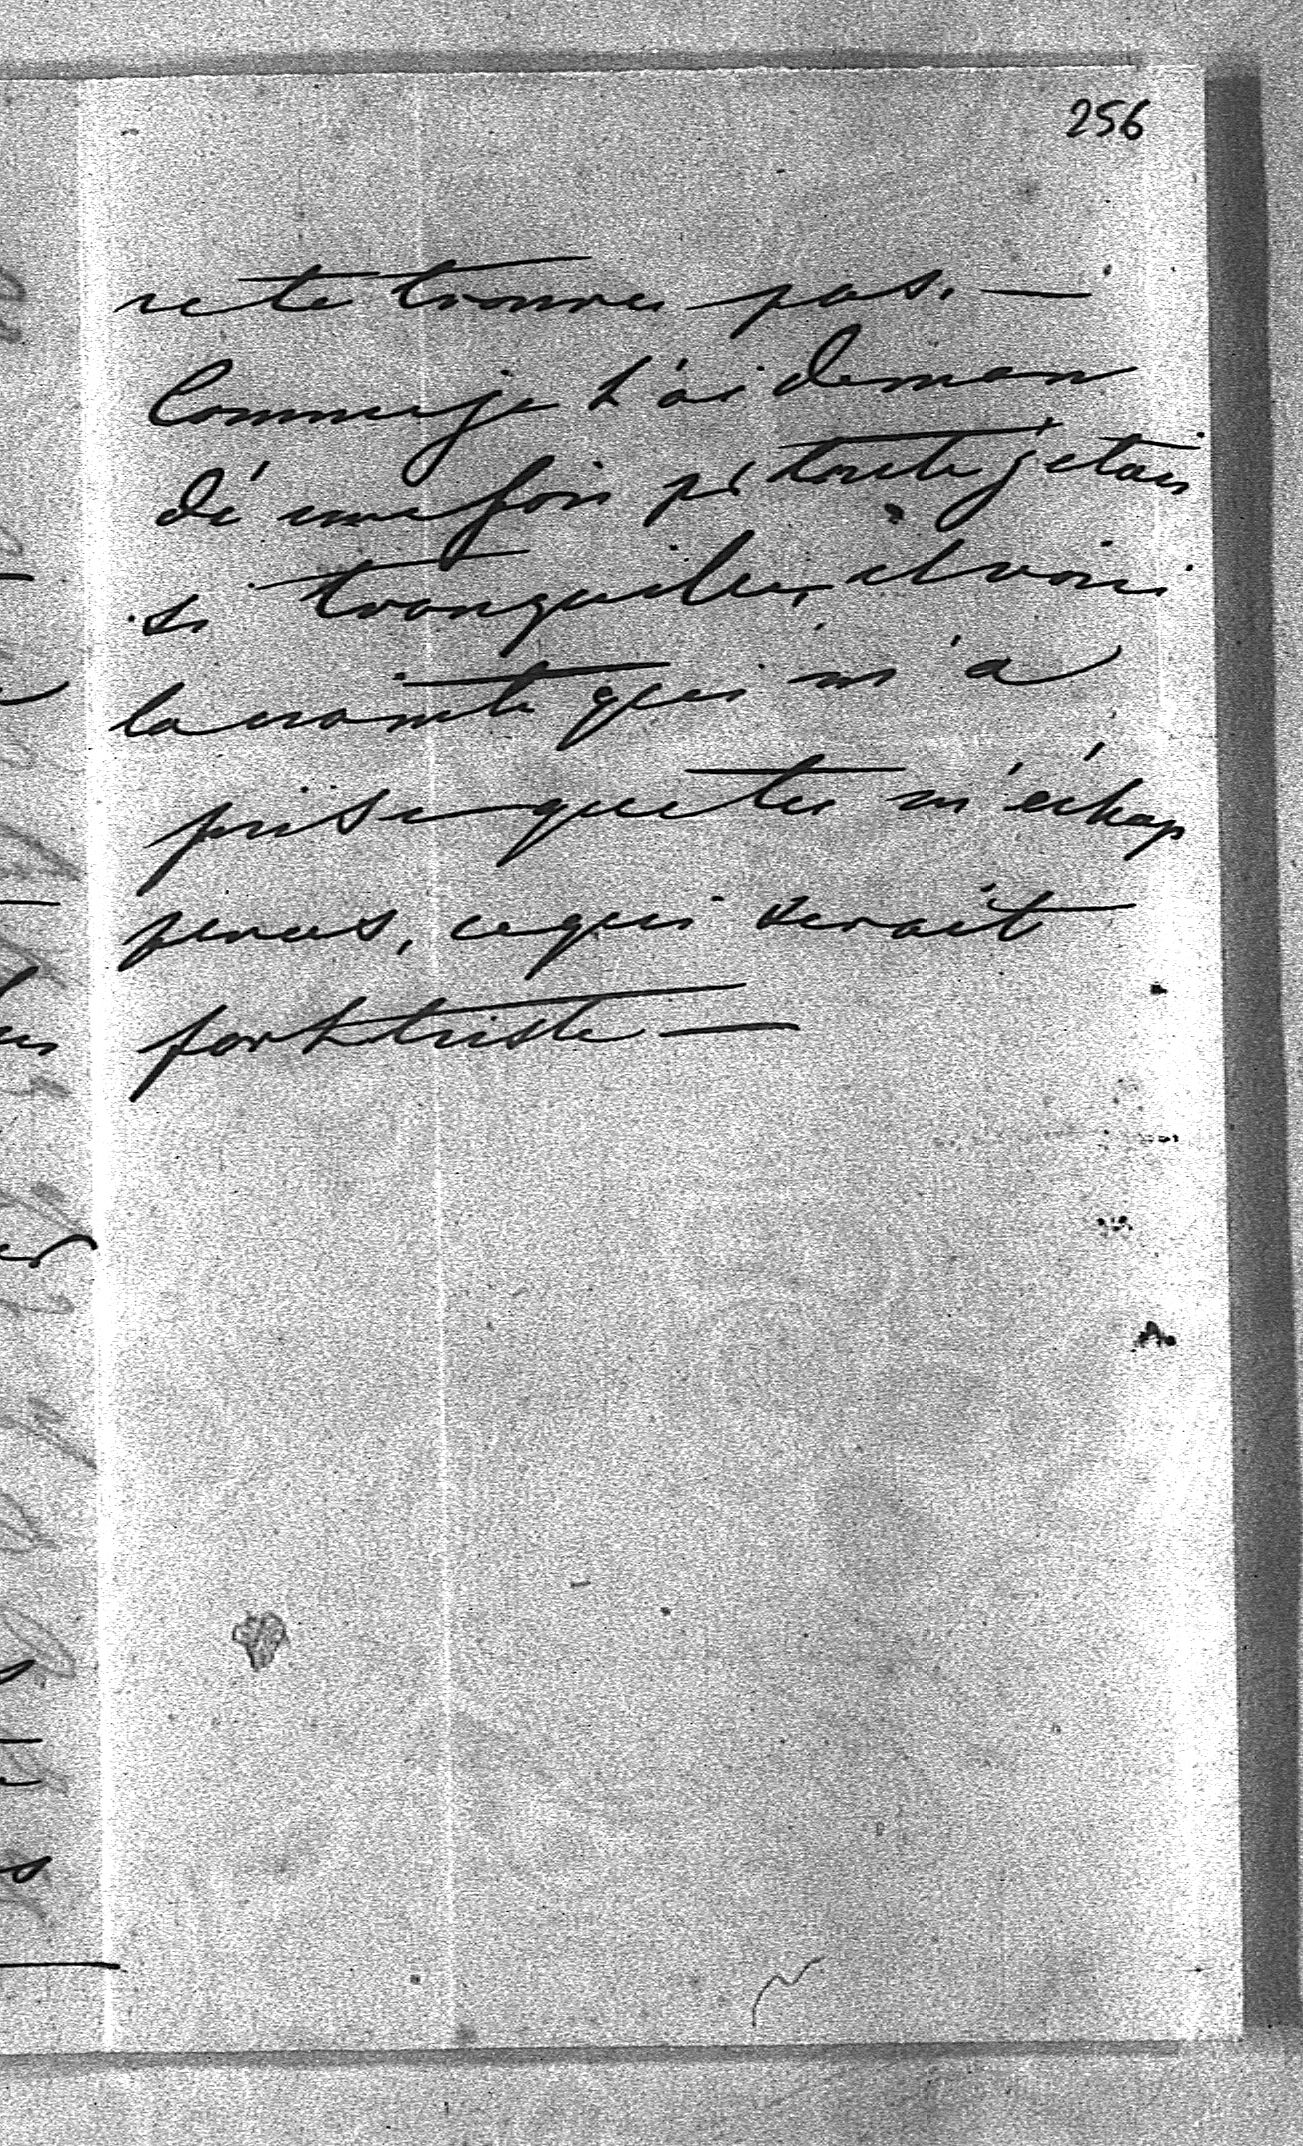 256
ne te trouver pas. —
Comme je t'ai deman
dé une fois pr toute j'étais
si tranquille, et voici
la crainte qui m'a
prise que tu m'échap
peras, ce qui serait
fort triste —